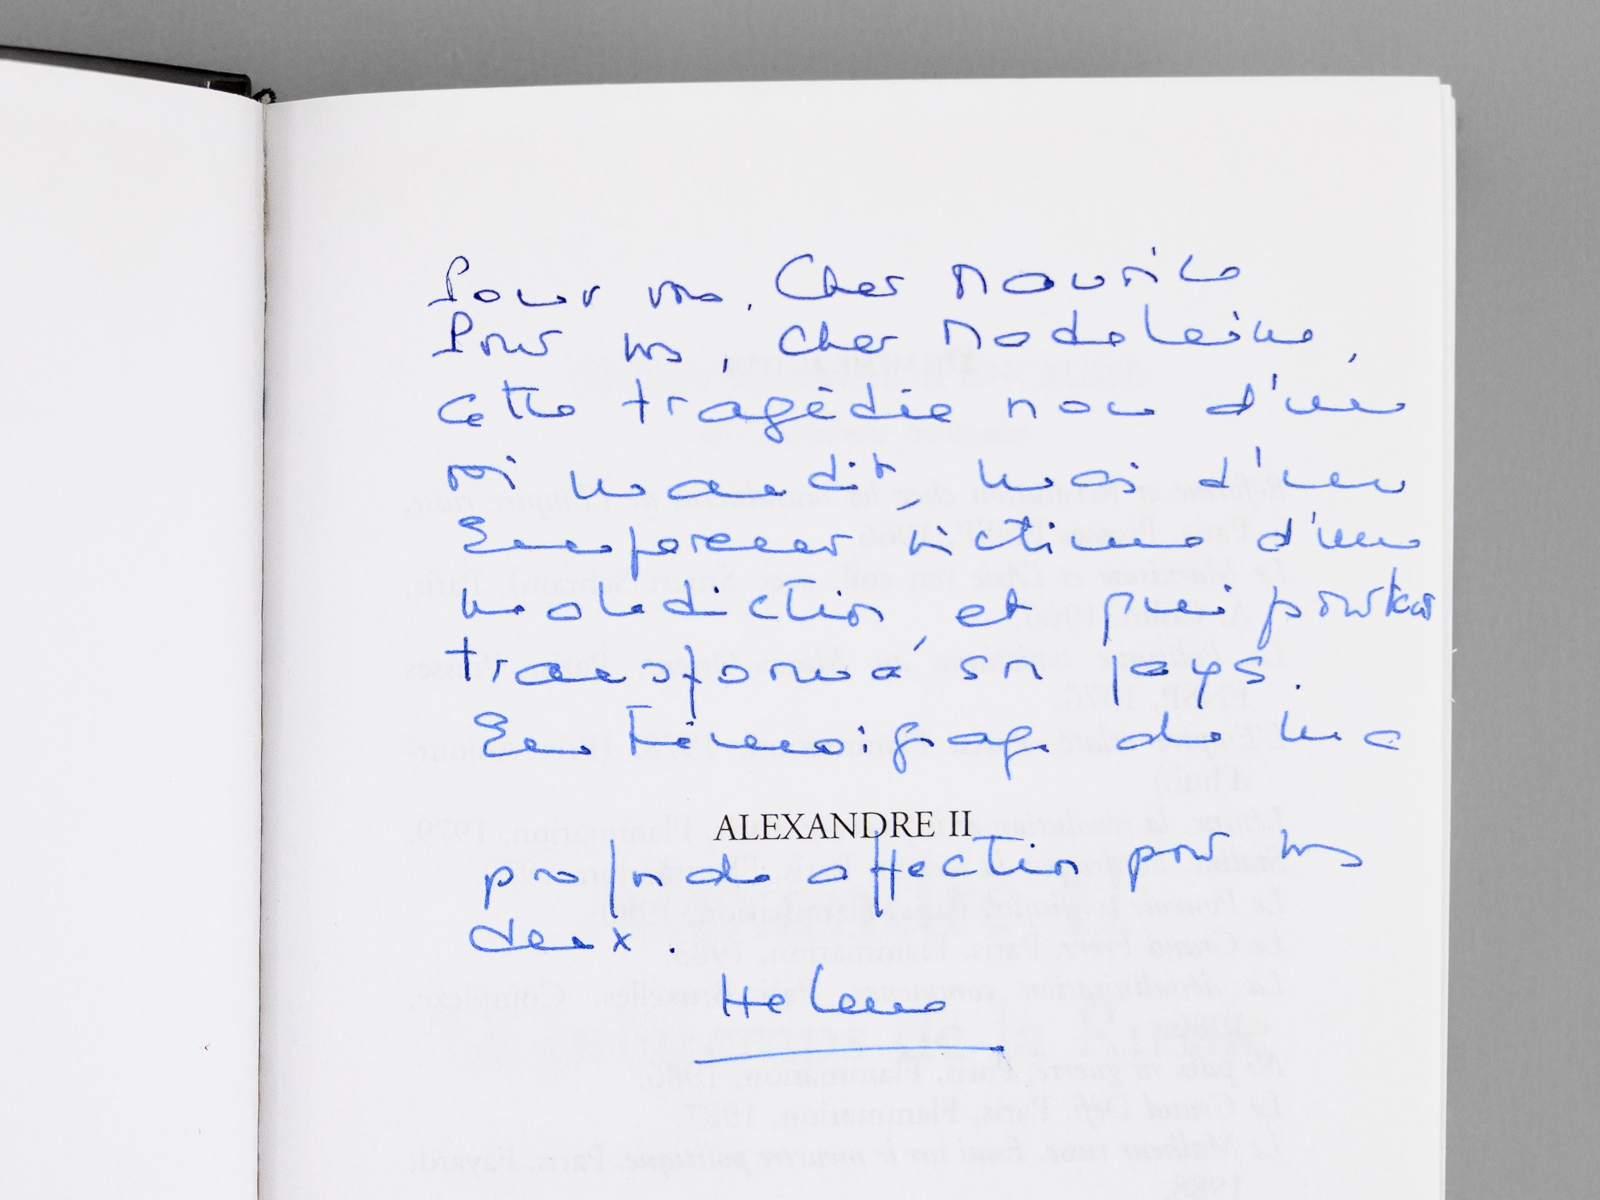 Pour vous, Cher Maurice
Pour vous, Cher Madeleine,
cette tragédie non d'un
roi maudit, mais d'un
Empereur victime d'une
malediction, et qui pourtant
transforma son pays.
En témoignage de ma
ALEXANDRE II
profonde affection pour vous
deux.
Helene